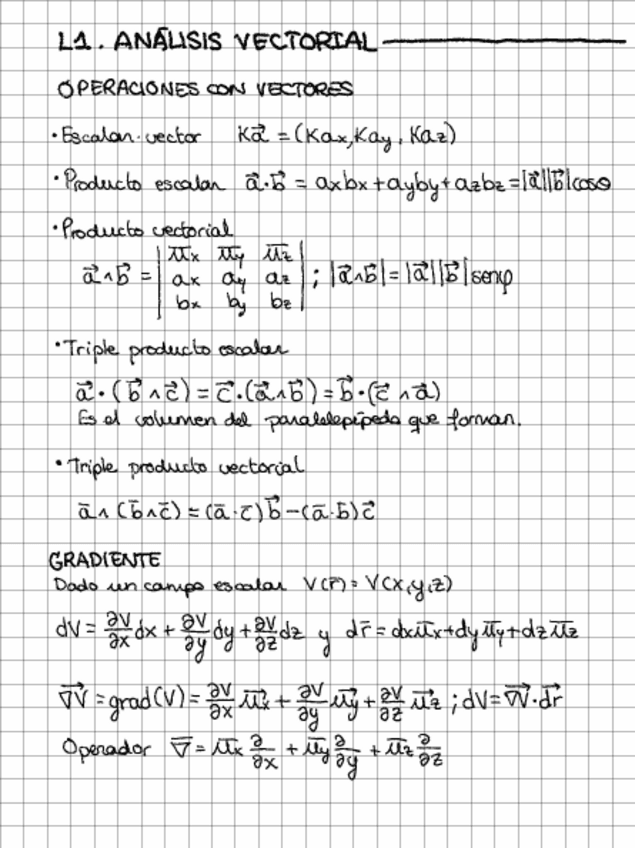 L1. ANÁLISIS VECTORIAL
OPERACIONES CON VECTORES
• Escalar·vector K\vec{a} = (Kax, Kay, Kaz)
• Producto escalar \vec{a}·\vec{b} = axbx + ayby + azbz = |\vec{a}||\vec{b}|cosθ
• Producto vectorial
\vec{a}∧\vec{b} = | \vec{u}x \vec{u}y \vec{u}z ; ax ay az ; bx by bz | ; |\vec{a}∧\vec{b}| = |\vec{a}||\vec{b}| senφ
• Triple producto escalar
\vec{a}·(\vec{b}∧\vec{c}) = \vec{c}·(\vec{a}∧\vec{b}) = \vec{b}·(\vec{c}∧\vec{a})
Es el volumen del paralelepípedo que forman.
• Triple producto vectorial
\bar{a}∧(\bar{b}∧\bar{c}) = (\bar{a}·\bar{c})\vec{b} − (\bar{a}·\bar{b})\vec{c}
GRADIENTE
Dado un campo escalar V(\bar{r}) = V(x,y,z)
dV = ∂V/∂x dx + ∂V/∂y dy + ∂V/∂z dz y d\bar{r} = dx\bar{u}x + dy\bar{u}y + dz\bar{u}z
\vec{∇V} = grad(V) = ∂V/∂x \vec{u}x + ∂V/∂y \vec{u}y + ∂V/∂z \vec{u}z ; dV = \vec{∇V}·\vec{dr}
Operador \bar{∇} = \bar{u}x ∂/∂x + \bar{u}y ∂/∂y + \bar{u}z ∂/∂z